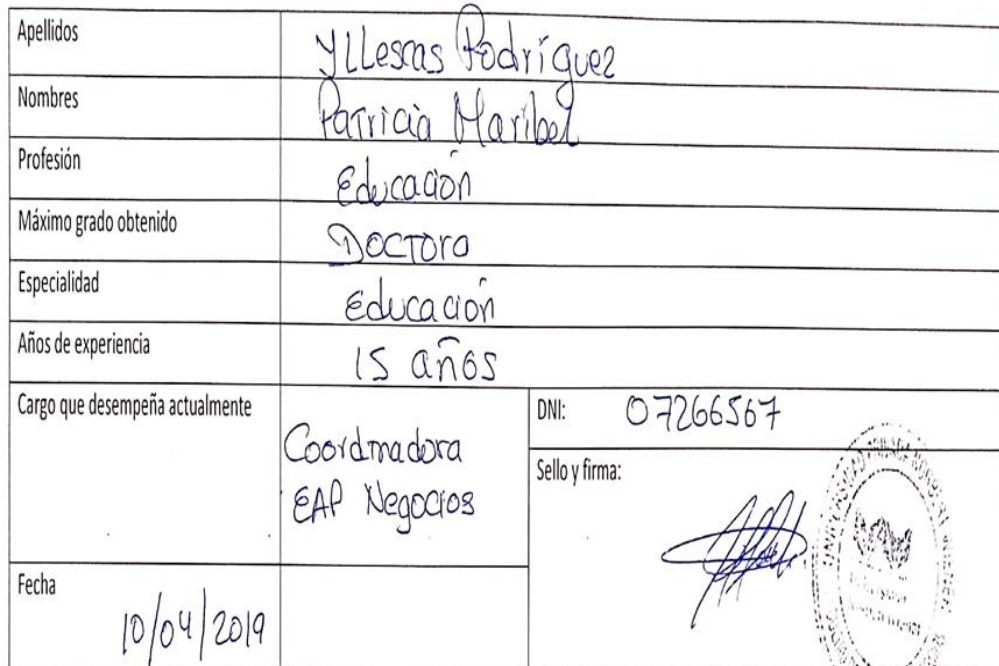 Apellidos
Yllescas Rodríguez
Nombres
Patricia Maribel
Profesión
Educación
Máximo grado obtenido
Doctora
Especialidad
Educación
Años de experiencia
15 años
Cargo que desempeña actualmente
Coordinadora
EAP Negocios
DNI: 07266567
Sello y firma:
Fecha
10/04/2019